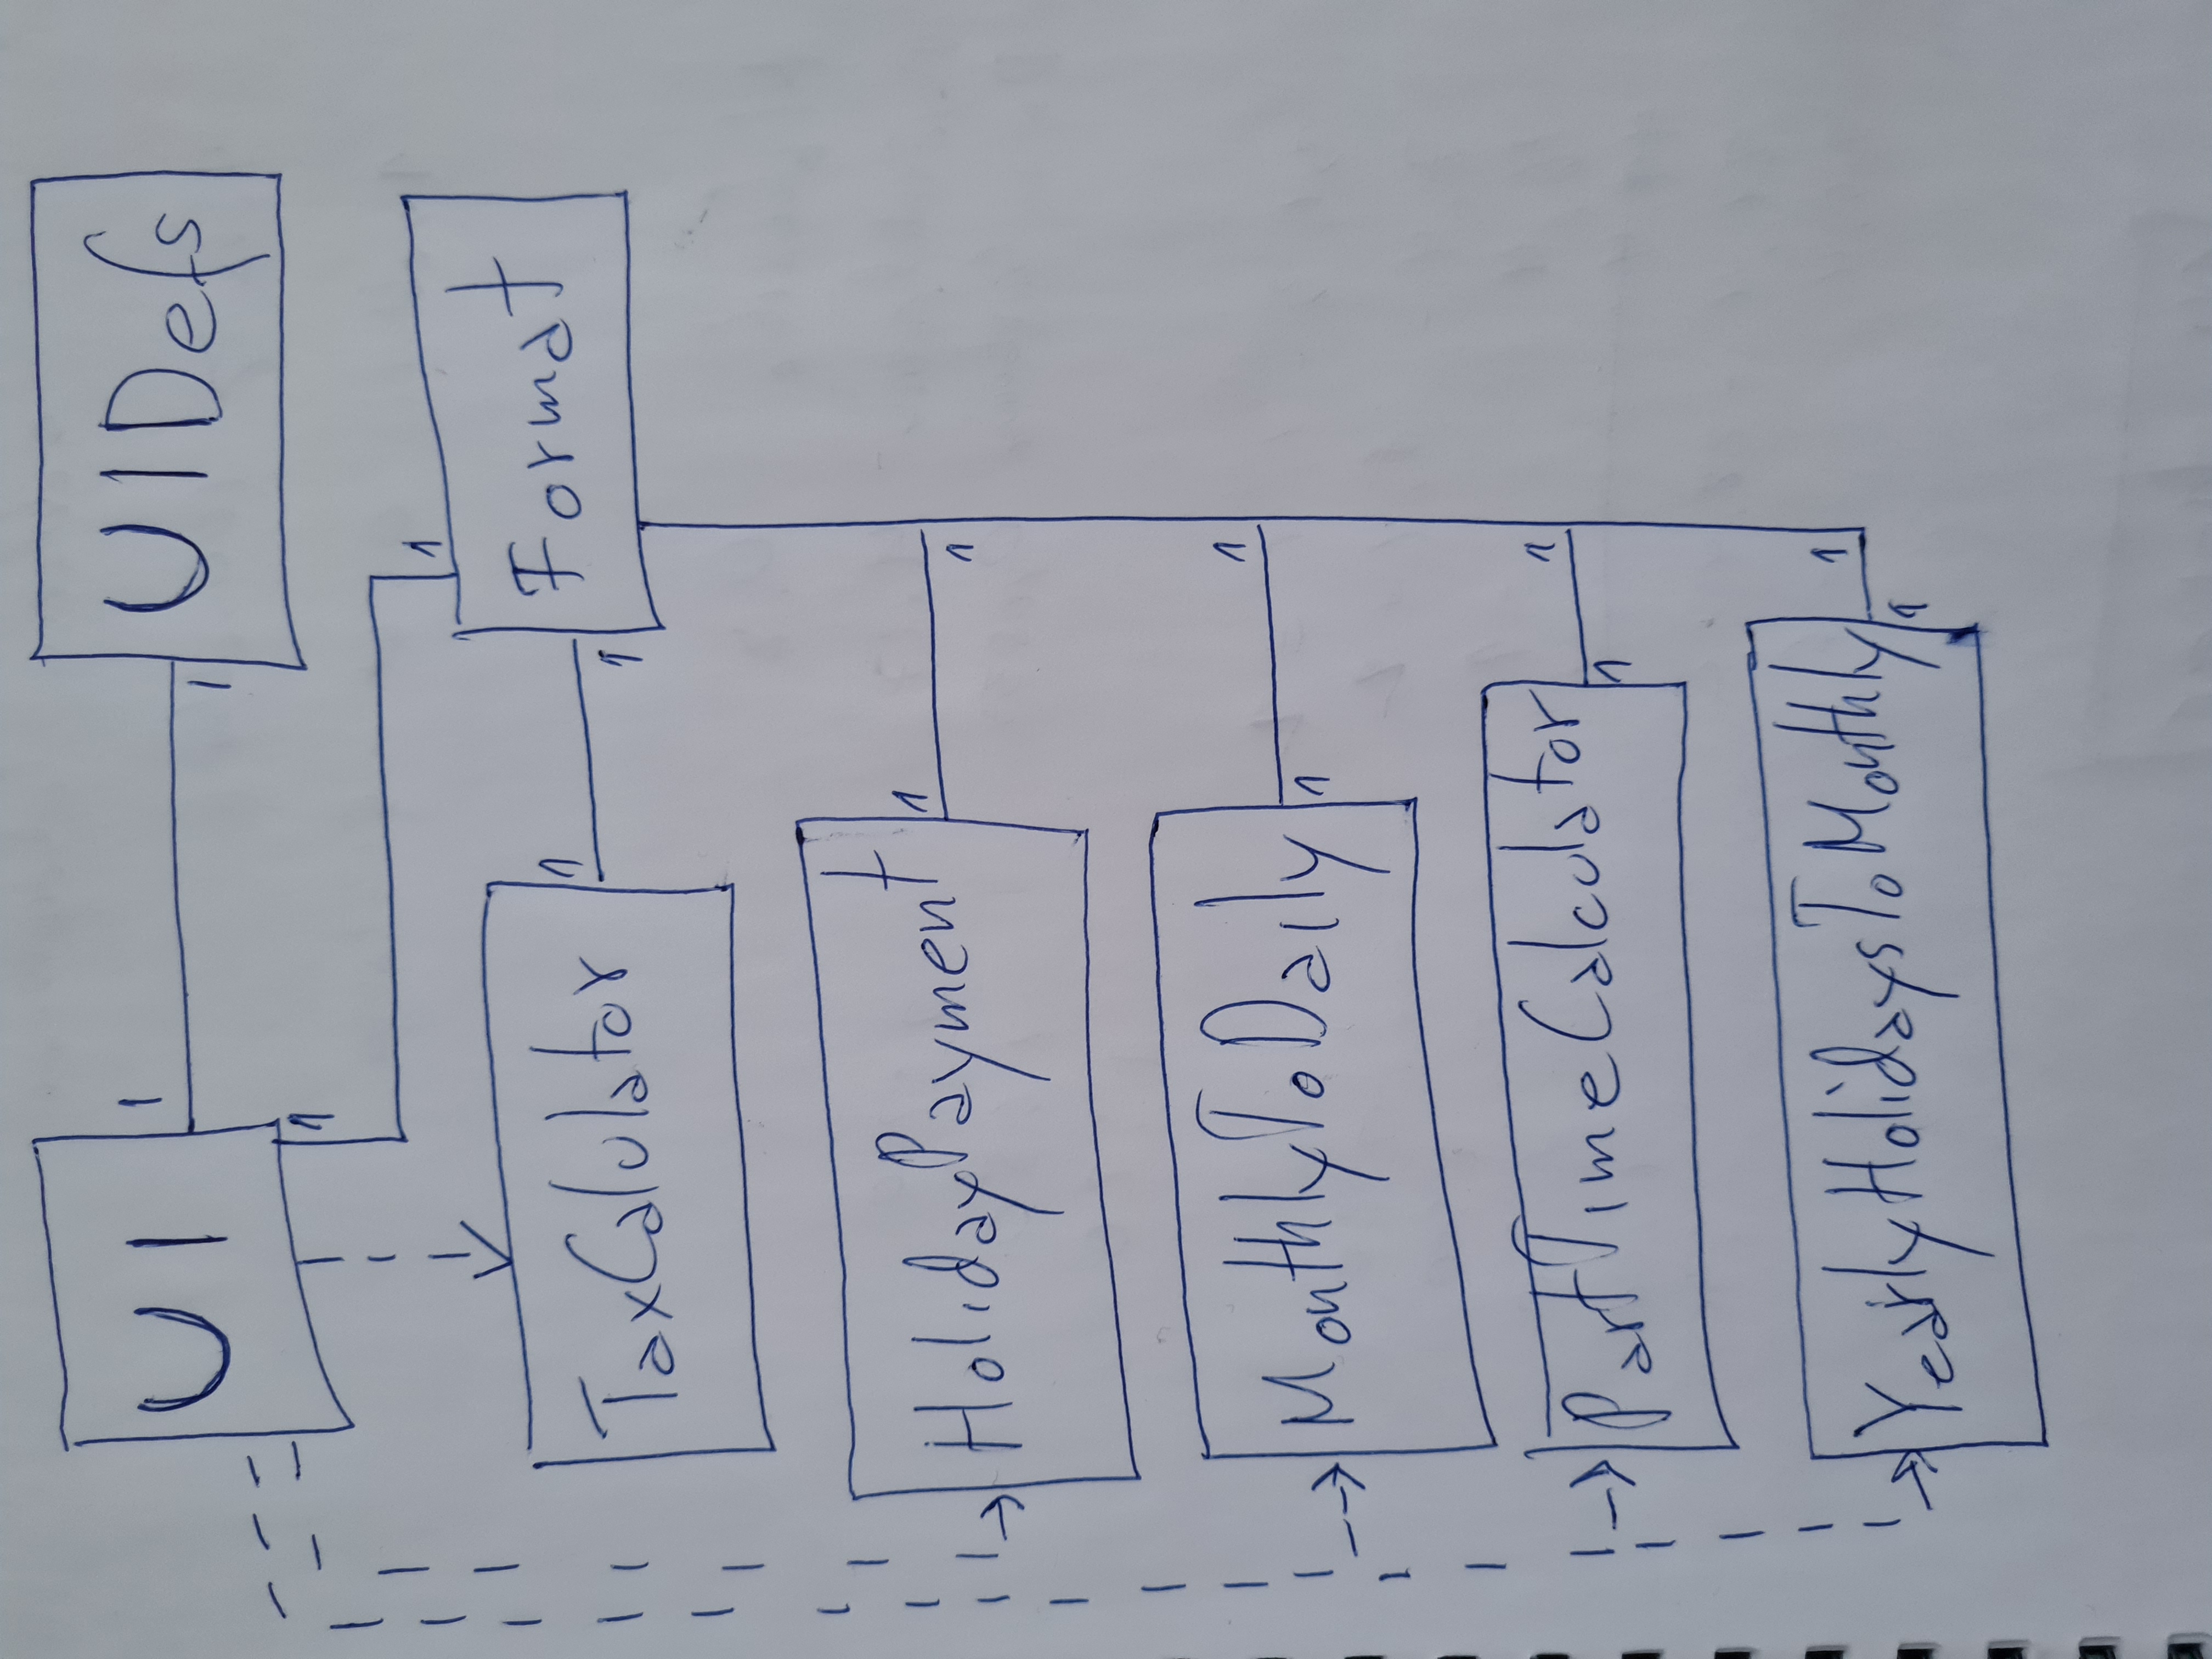 UI
1
1
UIDefs
1
1
TaxCalulator
1
1
Format
HolidayPayment
1
1
MonthlyToDaily
1
1
PartTimeCalculator
1
1
YearlyHolidaysToMonthly
1
1